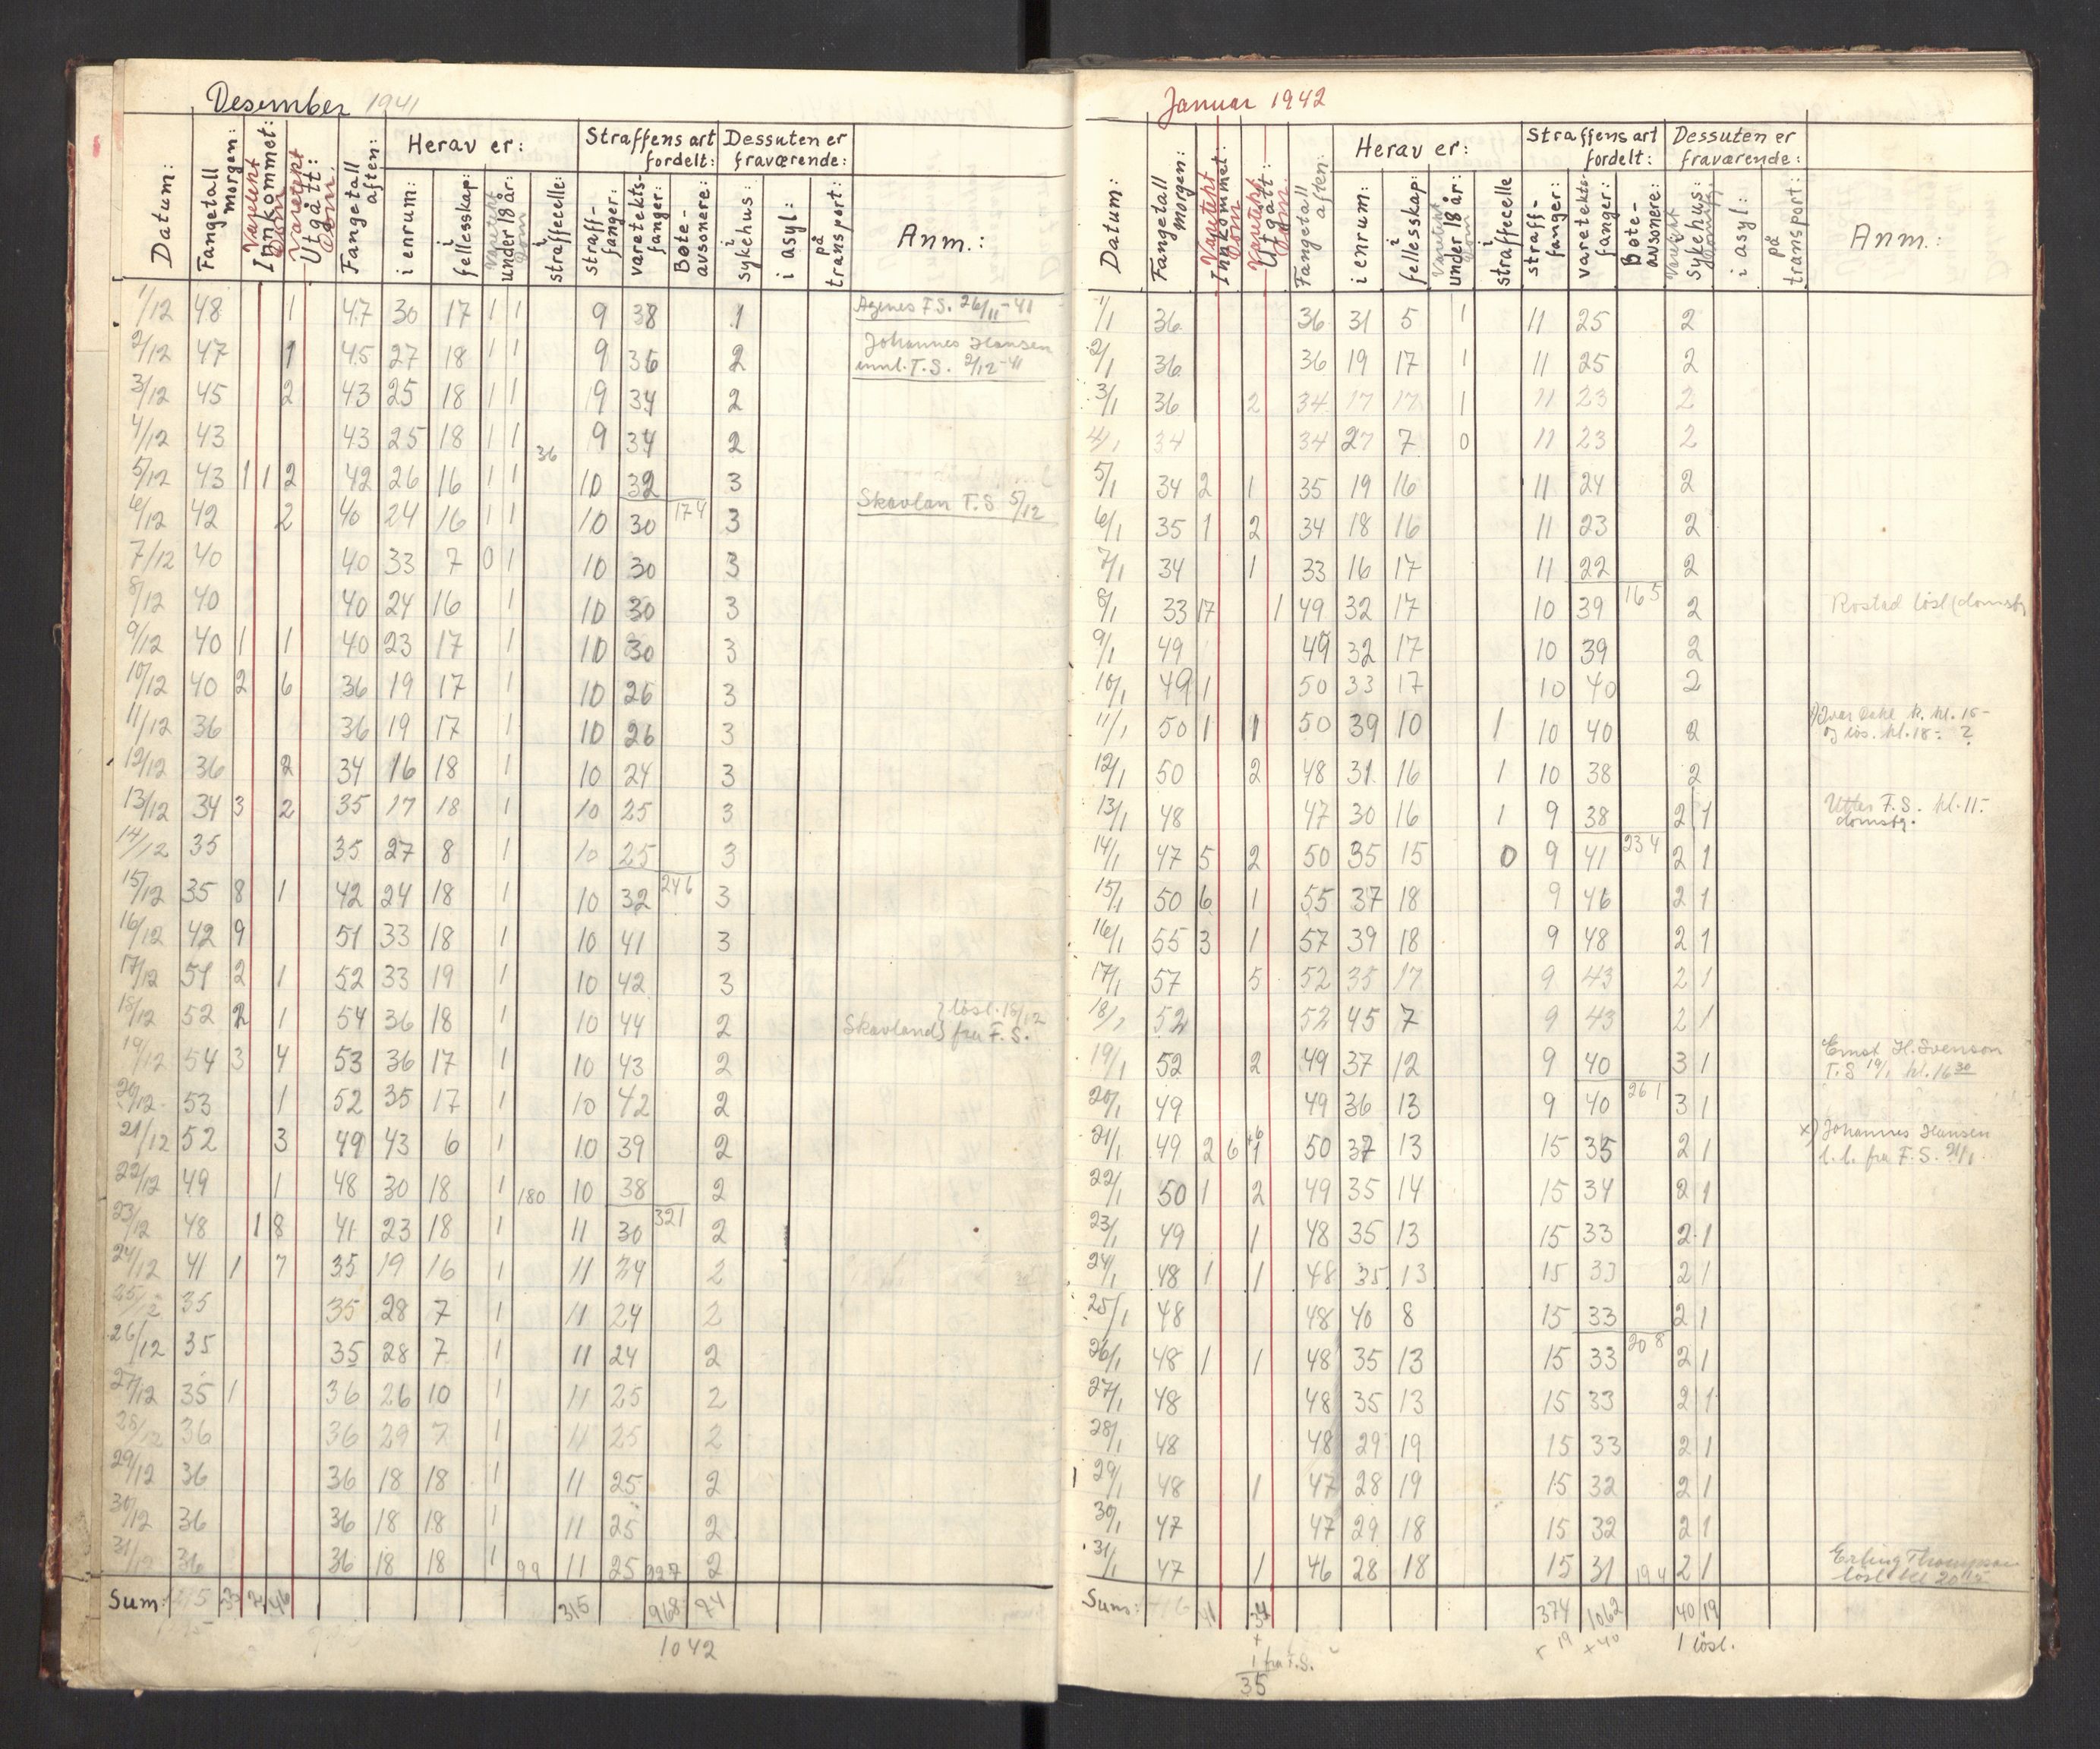 Desember 1941
Datum: Fangetall morgen: Varetekt Innkommet: Dom Varetekt Utgått: Dom Fangetall aften: Herav er: i enrum: i fellesskap: Varetekt under 18 år: Dom i straffecelle: Straffens art fordelt: straff-fanger: varetekts-fanger: Bøte-avsonere: Dessuten er fraværende: i sykehus: i asyl: på transport: Anm.:
1/12 48 1 47 30 17 1 1 9 38 1 Agnes F.S. 26/11-41
2/12 47 1 45 27 18 1 1 9 36 2 Johannes Hansen innl. T.S. 2/12-41
3/12 45 2 43 25 18 1 1 9 34 2
4/12 43 43 25 18 1 1 36 9 34 2
5/12 43 1 1 2 42 26 16 1 1 10 32 3
6/12 42 2 40 24 16 1 1 10 30 174 3 Skavlan T.S 5/12
7/12 40 40 33 7 0 1 10 30 3
8/12 40 40 24 16 1 10 30 3
9/12 40 1 1 40 23 17 1 10 30 3
10/12 40 2 6 36 19 17 1 10 26 3
11/12 36 36 19 17 1 10 26 3
12/12 36 2 34 16 18 1 10 24 3
13/12 34 3 2 35 17 18 1 10 25 3
14/12 35 35 27 8 1 10 25 3
15/12 35 8 1 42 24 18 1 10 32 246 3
16/12 42 9 51 33 18 1 10 41 3
17/12 51 2 1 52 33 19 1 10 42 3
18/12 52 2 1 54 36 18 1 10 44 2 Skavland } løsl. 18/12 fra F.S.
19/12 54 3 4 53 36 17 1 10 43 2
20/12 53 1 52 35 17 1 10 42 2
21/12 52 3 49 43 6 1 10 39 2
22/12 49 1 48 30 18 1 180 10 38 2
23/12 48 1 8 41 23 18 1 11 30 321 2
24/12 41 1 7 35 19 16 1 11 24 2
25/12 35 35 28 7 1 11 24 2
26/12 35 35 28 7 1 11 24 2
27/12 35 1 36 26 10 1 11 25 2
28/12 36 36 29 7 1 11 25 2
29/12 36 36 18 18 1 11 25 2
30/12 36 36 18 18 1 11 25 2
31/12 36 36 18 18 1 99 11 25 227 2
Sum: 33 2 46 315 968 74
1042
Januar 1942
Datum: Fangetall morgen: Varetekt Innkommet: Dom Varetekt Utgått: Dom Fangetall aften: Herav er: i enrum: i fellesskap: Varetekt under 18 år: Dom i straffecelle Straffens art fordelt: straff-fanger: varetekts-fanger: Bøte-avsonere: Dessuten er fraværende: Varetekt Sykehus: Domsf. i asyl: på transport: Anm.:
1/1 36 36 31 5 1 11 25 2
2/1 36 36 19 17 1 11 25 2
3/1 36 2 34 17 17 1 11 23 2
4/1 34 34 27 7 0 11 23 2
5/1 34 2 1 35 19 16 11 24 2
6/1 35 1 2 34 18 16 11 23 2
7/1 34 1 33 16 17 11 22 2
8/1 33 17 1 49 32 17 10 39 165 2 Rostad løsl (domsf
9/1 49 49 32 17 10 39 2
10/1 49 1 50 33 17 10 40 2
11/1 50 1 1 50 39 10 1 10 40 2 Ivar Dahl k. kl. 15- og løs. kl. 18-?
12/1 50 2 48 31 16 1 10 38 2
13/1 48 47 30 16 1 9 38 2 1 F.S. kl. 11- domsfg.
14/1 47 5 2 50 35 15 0 9 41 234 2 1
15/1 50 6 1 55 37 18 9 46 2 1
16/1 55 3 1 57 39 18 9 48 2 1
17/1 57 5 52 35 17 9 43 2 1
18/1 52 52 45 7 9 43 2 1
19/1 52 2 49 37 12 9 40 3 1 Ernst H. Svenson T.S 19/1 kl. 16 30
20/1 49 49 36 13 9 40 261 3 1
21/1 49 2 6 +6 1 50 37 13 15 35 2 1 x) Johannes Hansen t.b. fra F.S. 21/1
22/1 50 1 2 49 35 14 15 34 2 1
23/1 49 1 48 35 13 15 33 2 1
24/1 48 1 1 48 35 13 15 33 2 1
25/1 48 48 40 8 15 33 2 1
26/1 48 1 1 48 35 13 15 33 208 2 1
27/1 48 48 35 13 15 33 2 1
28/1 48 48 29 19 15 33 2 1
29/1 48 1 47 28 19 15 32 2 1
30/1 47 47 29 18 15 32 2 1
31/1 47 1 46 28 18 15 31 194 2 1 Erling Thompson løsl. kl 20 15
Sum: 41 34 374 1062 40 19
+ + 19 + 40 1 løsl.
1 fra F.S.
35